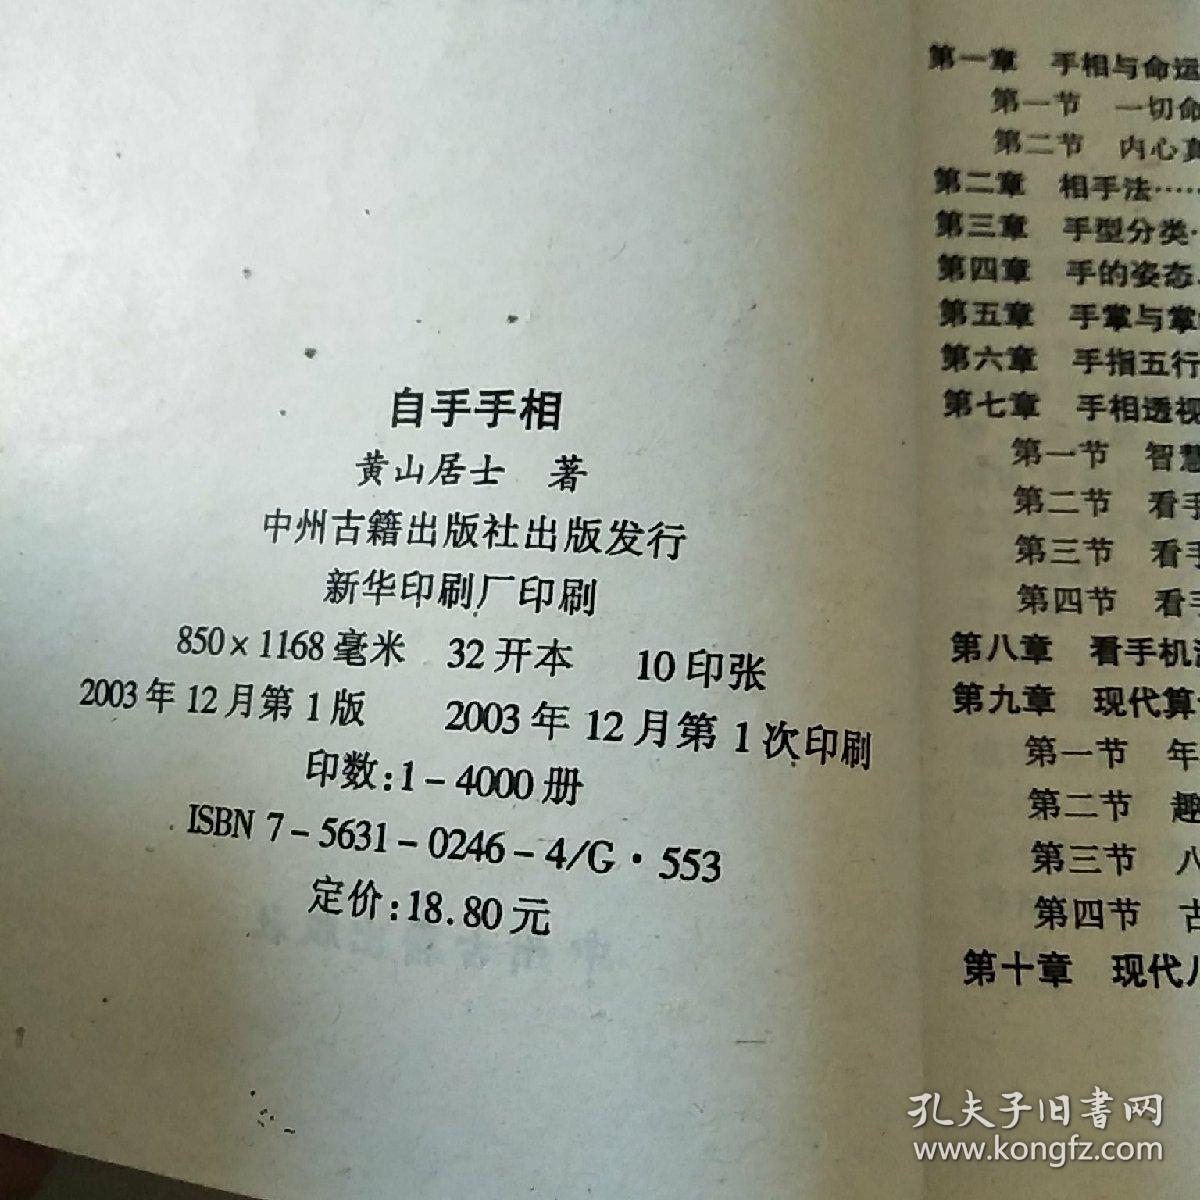 自手手相
黄山居士 著
中州古籍出版社出版发行
新华印刷厂印刷
850×1168毫米 32开本 10印张
2003年12月第1版 2003年12月第1次印刷
印数:1-4000册
ISBN 7-5631-0246-4/G·553
定价:18.80元
第一章 手相与命运
第一节 一切命
第二节 内心真
第二章 相手法……
第三章 手型分类·
第四章 手的姿态
第五章 手掌与掌
第六章 手指五行
第七章 手相透视
第一节 智慧
第二节 看手
第三节 看手
第四节 看手
第八章 看手机
第九章 现代算
第一节 年
第二节 趣
第三节 八
第四节 古
第十章 现代八
孔夫子旧书网
www.kongfz.com